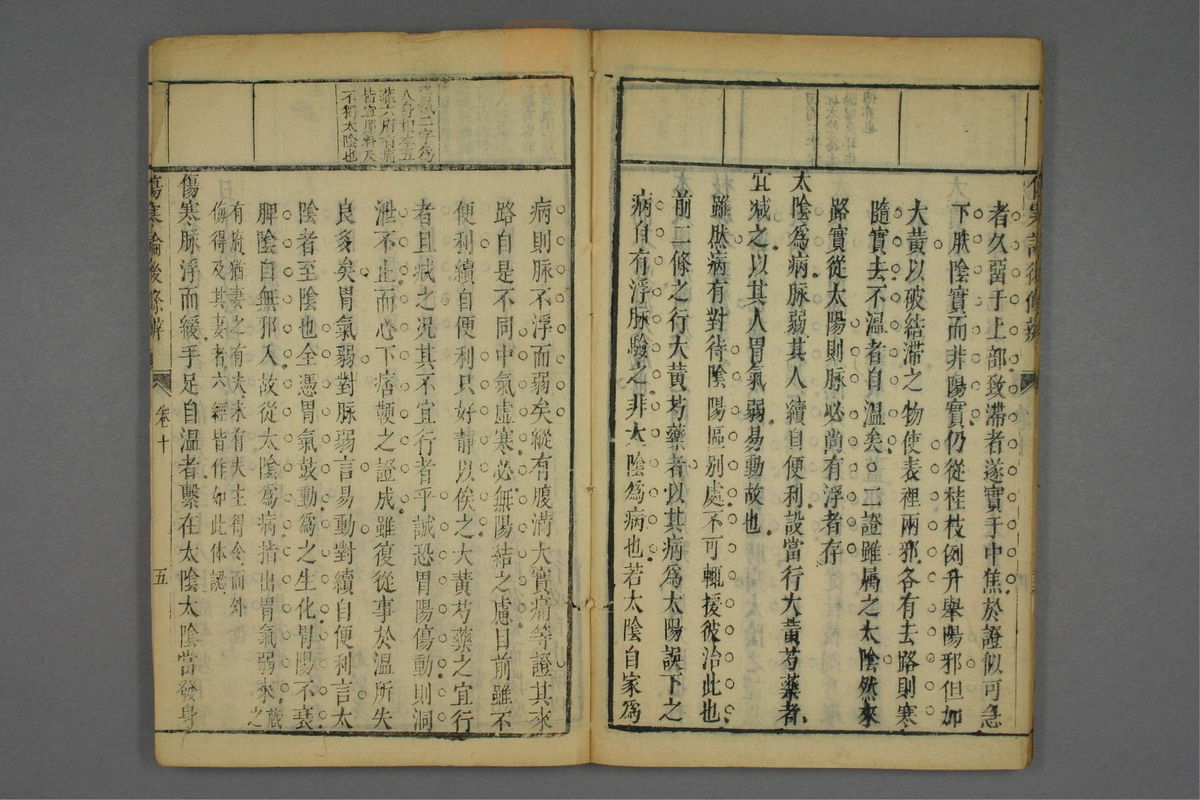 者久畱于上部致滯者遂實于中焦於證似可急
下肰陰實而非陽實仍從桂枝例升舉陽邪但加
大黃以破結滯之物使表裡兩邪各有去路則寒
隨實去不溫者自溫矣二證雖属之太陰然來
路實從太陽則脉必尚有浮者存
太陰爲病脉弱其人續自便利設當行大黃芍藥者
宜减之以其人胃氣弱易動故也
雖肰病有對待陰陽區别處不可輒援彼治此也
前二條之行大黃芍藥者以其病爲太陽誤下之
病自有浮脉驗之非太陰爲病也若太陰自家爲
二字爲
人身根本五
藏六府有病
皆宜照料及
不獨太陰也
病則脉不浮而弱矣縱有腹滿大實痛等證其來
路自是不同中氣虛寒必無陽結之慮目前雖不
便利續自便利只好靜以俟之大黃芍藥之宜行
者且减之况其不宜行者乎誠恐胃陽傷動則洞
泄不止而心下痞鞕之證成雖復從事於溫所失
良多矣胃氣弱對脉弱言易動對續自便利言太
陰者至陰也全憑胃氣鼓動爲之生化胃陽不衰
脾陰自無邪入故從太陰爲病指出胃氣弱來藏之
有府猶妻之有夫未有夫主得令而外
侮得及其妻者六經皆作如此体認
傷寒脉浮而緩手足自溫者繫在太陰太陰當發身
傷寒論後條辨
卷十
五